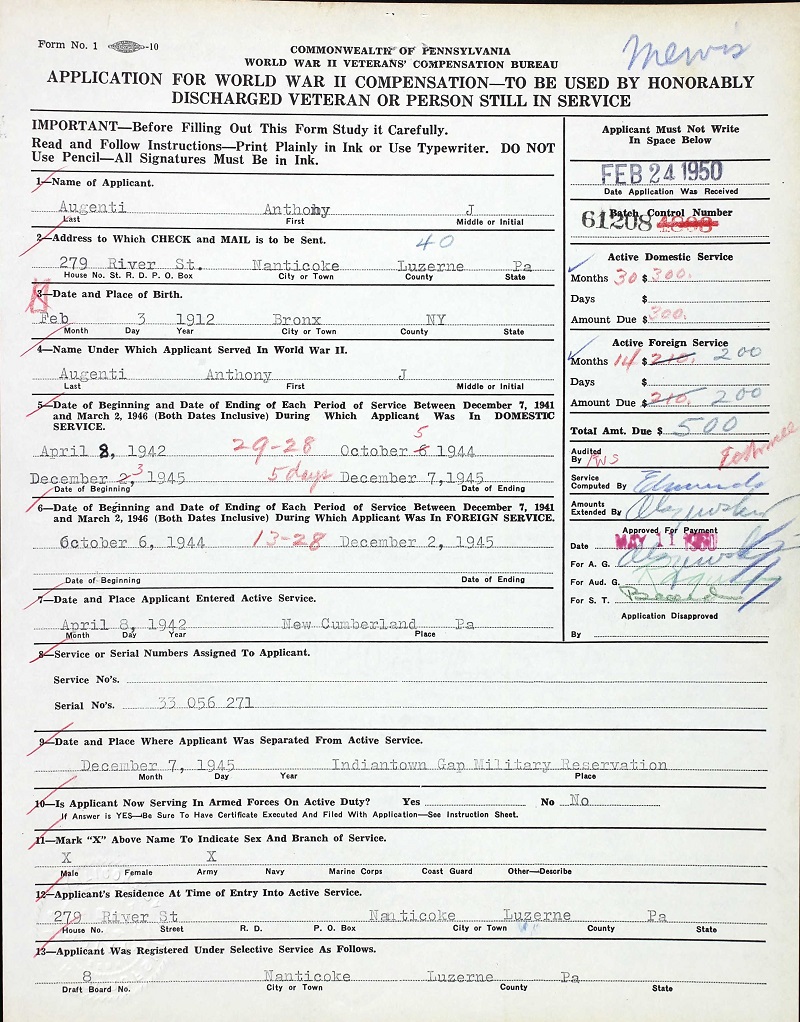 Form No. 1 -10
COMMONWEALTH OF PENNSYLVANIA
WORLD WAR II VETERANS' COMPENSATION BUREAU
Mervis
APPLICATION FOR WORLD WAR II COMPENSATION—TO BE USED BY HONORABLY
DISCHARGED VETERAN OR PERSON STILL IN SERVICE
IMPORTANT—Before Filling Out This Form Study it Carefully.
Read and Follow Instructions—Print Plainly in Ink or Use Typewriter. DO NOT
Use Pencil—All Signatures Must Be in Ink.
1—Name of Applicant.
Augenti Anthony J
Last First Middle or Initial
2—Address to Which CHECK and MAIL is to be Sent. 40
279 River St. Nanticoke Luzerne Pa
House No. St. R. D. P. O. Box City or Town County State
3—Date and Place of Birth.
Feb 3 1912 Bronx NY
Month Day Year City or Town County State
4—Name Under Which Applicant Served In World War II.
Augenti Anthony J
Last First Middle or Initial
5—Date of Beginning and Date of Ending of Each Period of Service Between December 7, 1941
and March 2, 1946 (Both Dates Inclusive) During Which Applicant Was In DOMESTIC
SERVICE.
April 8, 1942 29-28 October 6 5 1944
December 2, 3 1945 5 days December 7,1945
Date of Beginning Date of Ending
6—Date of Beginning and Date of Ending of Each Period of Service Between December 7, 1941
and March 2, 1946 (Both Dates Inclusive) During Which Applicant Was In FOREIGN SERVICE.
October 6, 1944 13-28 December 2, 1945
Date of Beginning Date of Ending
7—Date and Place Applicant Entered Active Service.
April 8, 1942 New Cumberland Pa
Month Day Year Place
8—Service or Serial Numbers Assigned To Applicant.
Service No's.
Serial No's. 33 056 271
9—Date and Place Where Applicant Was Separated From Active Service.
December 7, 1945 Indiantown Gap Military Reservation
Month Day Year Place
10—Is Applicant Now Serving In Armed Forces On Active Duty? Yes No No
If Answer is YES—Be Sure To Have Certificate Executed And Filed With Application—See Instruction Sheet.
11—Mark "X" Above Name To Indicate Sex and Branch of Service.
X X
Male Female Army Navy Marine Corps Coast Guard Other—Describe
12—Applicant's Residence At Time of Entry Into Active Service.
279 River St Nanticoke Luzerne Pa
House No. Street R. D. P. O. Box City or Town County State
13—Applicant Was Registered Under Selective Service As Follows.
8 Nanticoke Luzerne Pa
Draft Board No. City or Town County State
Applicant Must Not Write
In Space Below
FEB 24 1950
Date Application Was Received
Batch Control Number
61208
Active Domestic Service
Months 30 $ 300.
Days $
Amount Due $ 300.
Active Foreign Service
Months 14 $ 210. 200
Days $
Amount Due $ 210. 200
Total Amt. Due $ 500
Audited
By RWS
Service
Computed By Edmunds
Amounts
Extended By
Approved For Payment
Date MAY 11 1950
For A. G.
For Aud. G.
For S. T.
Application Disapproved
By